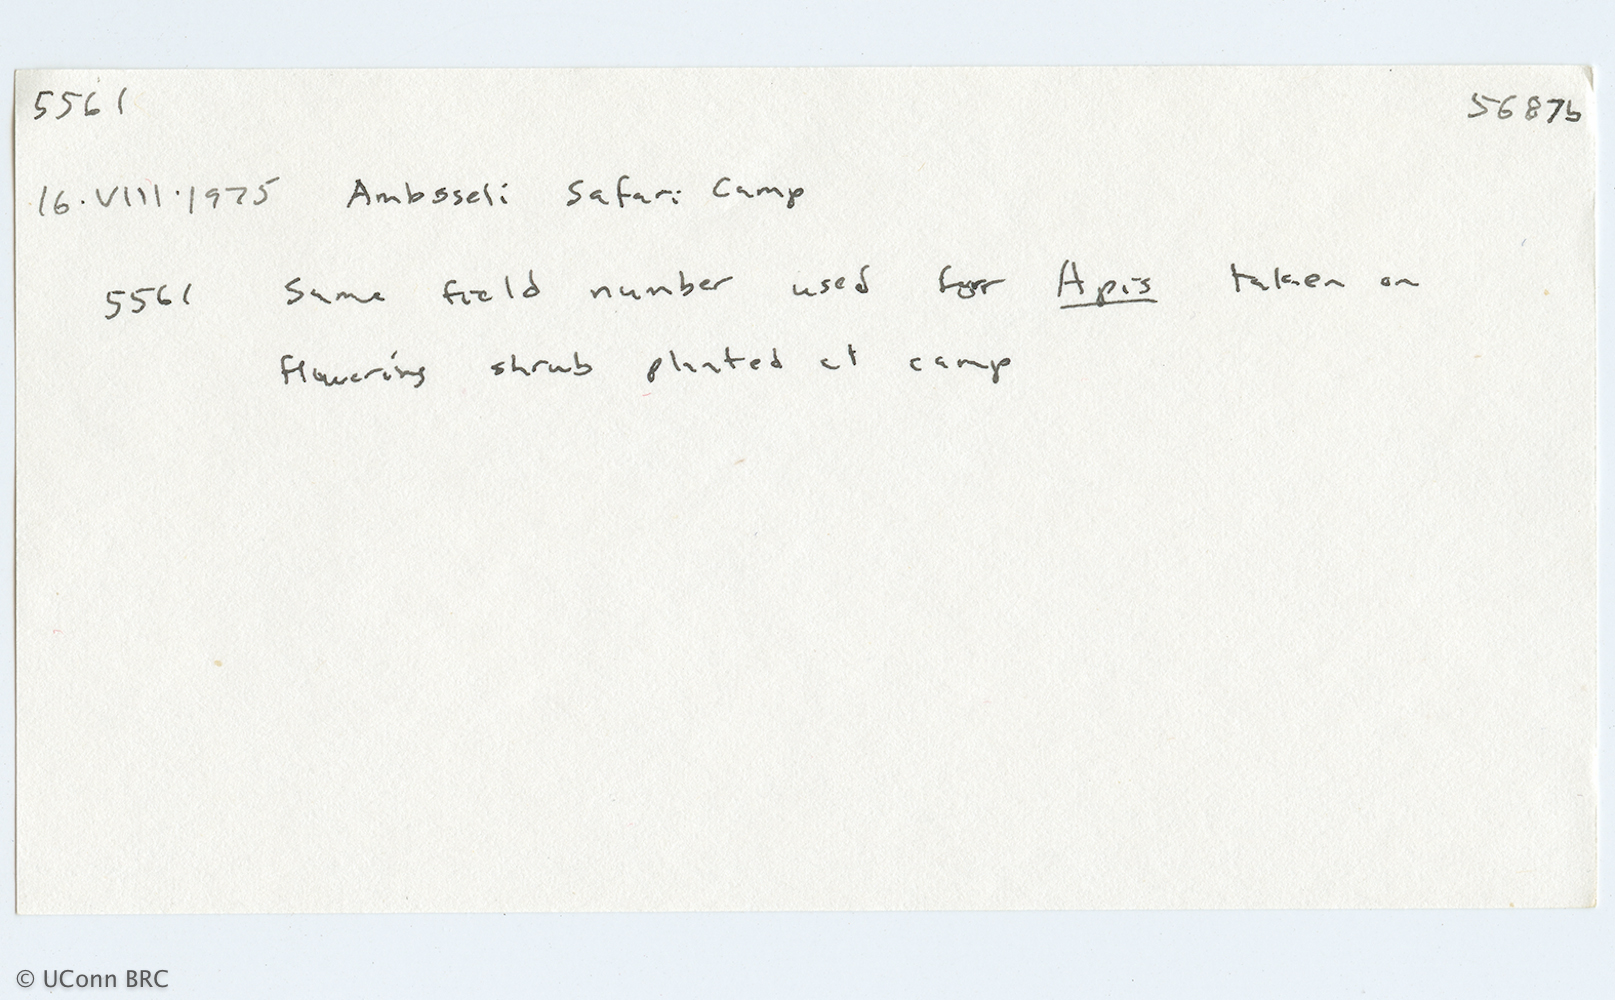 5561 5687b
16.VIII.1975 Amboseli Safari Camp
5561 Same field number used for Apis taken on
flowering shrub planted at camp
© UConn BRC